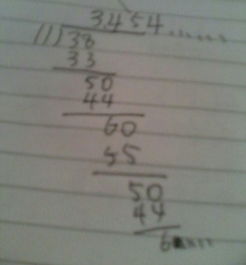 3.454......
11)38
33
50
44
60
55
50
44
6....